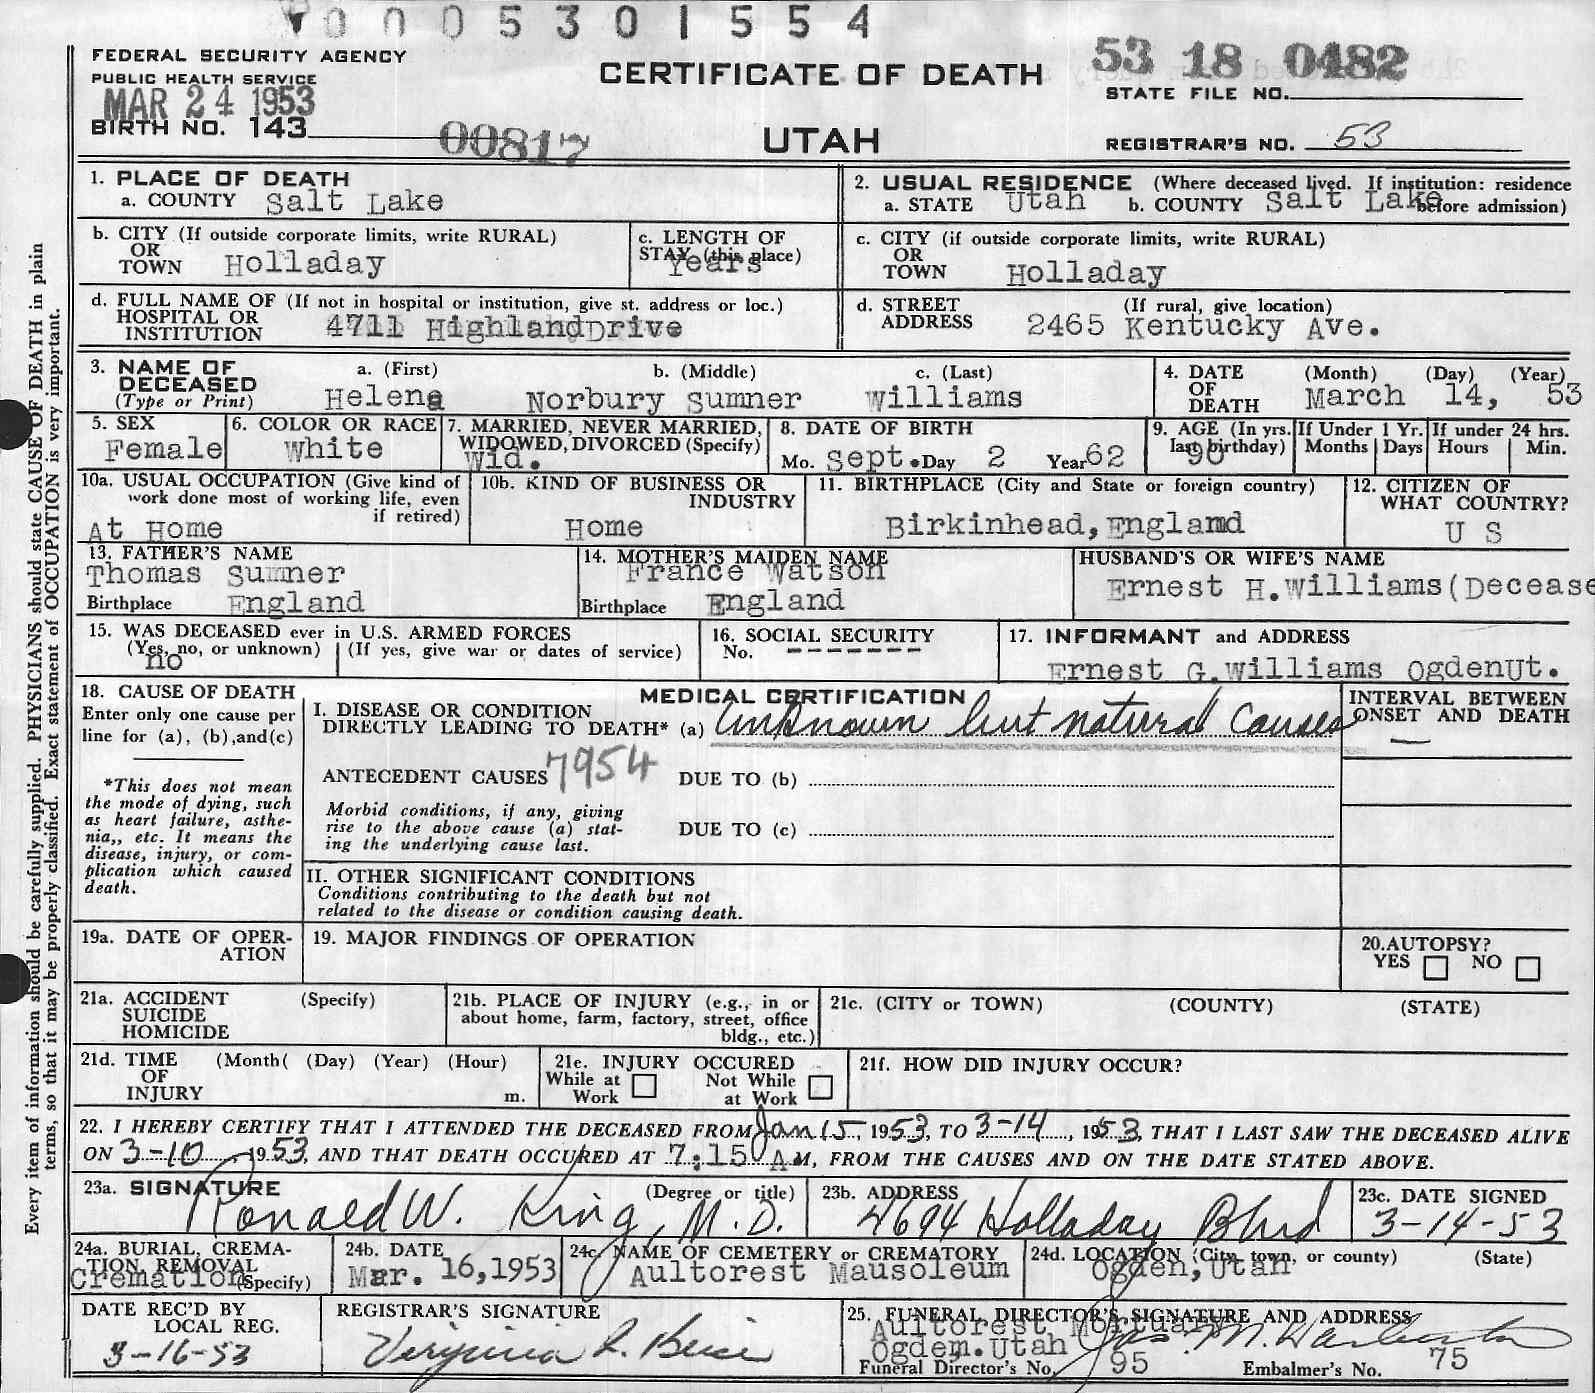 0005301554
FEDERAL SECURITY AGENCY
PUBLIC HEALTH SERVICE
MAR 24 1953
BIRTH NO. 143 00817
CERTIFICATE OF DEATH
UTAH
53 18 0482
STATE FILE NO.
REGISTRAR'S NO. 53
Every item of information should be carefully supplied. PHYSICIANS should state CAUSE OF DEATH in plain
terms, so that it may be properly classified. Exact statement of OCCUPATION is very important.
1. PLACE OF DEATH
a. COUNTY Salt Lake
2. USUAL RESIDENCE (Where deceased lived. If institution: residence
a. STATE Utah b. COUNTY Salt Lake before admission)
b. CITY (If outside corporate limits, write RURAL)
OR
TOWN Holladay
c. LENGTH OF
STAY (this place)
Years
c. CITY (if outside corporate limits, write RURAL)
OR
TOWN Holladay
d. FULL NAME OF (If not in hospital or institution, give st. address or loc.)
HOSPITAL OR
INSTITUTION 4711 HighlandDrive
d. STREET (If rural, give location)
ADDRESS 2465 Kentucky Ave.
3. NAME OF
DECEASED
(Type or Print)
a. (First) b. (Middle) c. (Last)
Helena Norbury Sumner Williams
4. DATE
OF
DEATH
(Month) (Day) (Year)
March 14, 53
5. SEX
Female
6. COLOR OR RACE
White
7. MARRIED, NEVER MARRIED,
WIDOWED, DIVORCED (Specify)
Wid.
8. DATE OF BIRTH
Mo. Sept. Day 2 Year 62
9. AGE (In yrs.
last birthday)
90
If Under 1 Yr.
Months Days
If under 24 hrs.
Hours Min.
10a. USUAL OCCUPATION (Give kind of
work done most of working life, even
if retired)
At Home
10b. KIND OF BUSINESS OR
INDUSTRY
Home
11. BIRTHPLACE (City and State or foreign country)
Birkinhead, England
12. CITIZEN OF
WHAT COUNTRY?
U S
13. FATHER'S NAME
Thomas Sumner
Birthplace England
14. MOTHER'S MAIDEN NAME
France Watson
Birthplace England
HUSBAND'S OR WIFE'S NAME
Ernest H.Williams(Decease
15. WAS DECEASED ever in U.S. ARMED FORCES
(Yes, no, or unknown) (If yes, give war or dates of service)
no
16. SOCIAL SECURITY
No. -------
17. INFORMANT and ADDRESS
Ernest G.Williams OgdenUt.
18. CAUSE OF DEATH
Enter only one cause per
line for (a), (b),and(c)
*This does not mean
the mode of dying, such
as heart failure, asthe-
nia,, etc. It means the
disease, injury, or com-
plication which caused
death.
MEDICAL CERTIFICATION
I. DISEASE OR CONDITION
DIRECTLY LEADING TO DEATH* (a) Unknown but natural causes
ANTECEDENT CAUSES 7954 DUE TO (b)
Morbid conditions, if any, giving
rise to the above cause (a) stat-
ing the underlying cause last.
DUE TO (c)
INTERVAL BETWEEN
ONSET AND DEATH
—
II. OTHER SIGNIFICANT CONDITIONS
Conditions contributing to the death but not
related to the disease or condition causing death.
19a. DATE OF OPER-
ATION
19. MAJOR FINDINGS OF OPERATION
20.AUTOPSY?
YES NO
21a. ACCIDENT (Specify)
SUICIDE
HOMICIDE
21b. PLACE OF INJURY (e.g., in or
about home, farm, factory, street, office
bldg., etc.)
21c. (CITY or TOWN) (COUNTY) (STATE)
21d. TIME (Month( (Day) (Year) (Hour)
OF
INJURY m.
21e. INJURY OCCURED
While at Not While
Work at Work
21f. HOW DID INJURY OCCUR?
22. I HEREBY CERTIFY THAT I ATTENDED THE DECEASED FROM Jan 15, 1953, TO 3-14, 1953, THAT I LAST SAW THE DECEASED ALIVE
ON 3-10, 1953, AND THAT DEATH OCCURED AT 7:15 A M, FROM THE CAUSES AND ON THE DATE STATED ABOVE.
23a. SIGNATURE (Degree or title)
Ronald W. King, M.D.
23b. ADDRESS
4694 Holladay Blvd
23c. DATE SIGNED
3-14-53
24a. BURIAL, CREMA-
TION, REMOVAL
Cremation (Specify)
24b. DATE
Mar. 16,1953
24c. NAME OF CEMETERY or CREMATORY
Aultorest Mausoleum
24d. LOCATION (City, town, or county) (State)
Ogden, Utah
DATE REC'D BY
LOCAL REG.
3-16-53
REGISTRAR'S SIGNATURE
Virginia
25. FUNERAL DIRECTOR'S SIGNATURE AND ADDRESS
Aultorest Mortuary
Ogdem.Utah
Funeral Director's No. 95 Embalmer's No. 75